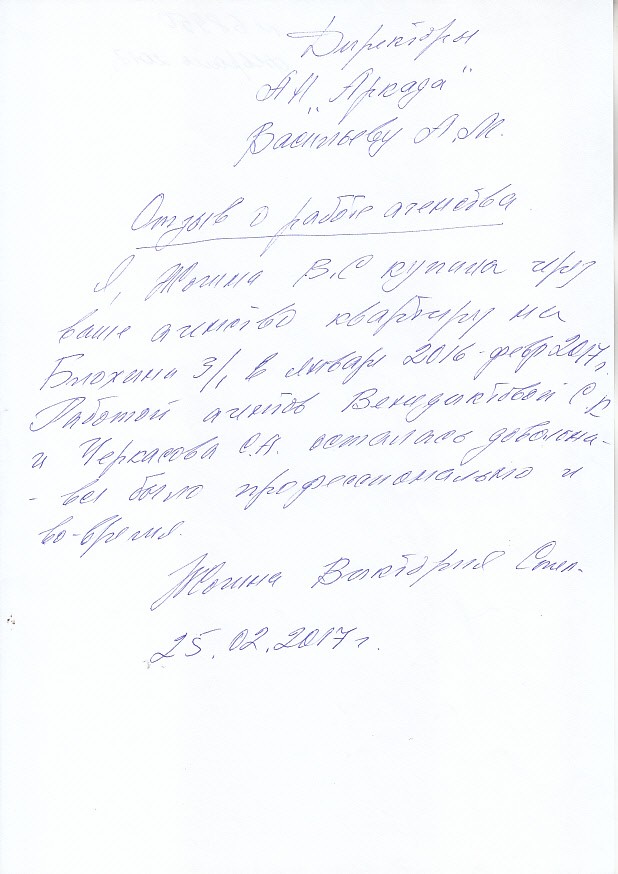 Директору
АН „Аркада"
Васильеву А.М.
Отзыв о работе агенства
Я, Жогина В.С купила чрз
ваше агенство квартиру на
Блохина 3/1, в январе 2016-февр 2017г.
Работой агентов Венедиктовой С.В
и Черкасова С.А. осталась довольна-
- все было профессионально и
во-время.
Жогина Виктория
25.02.2017г.